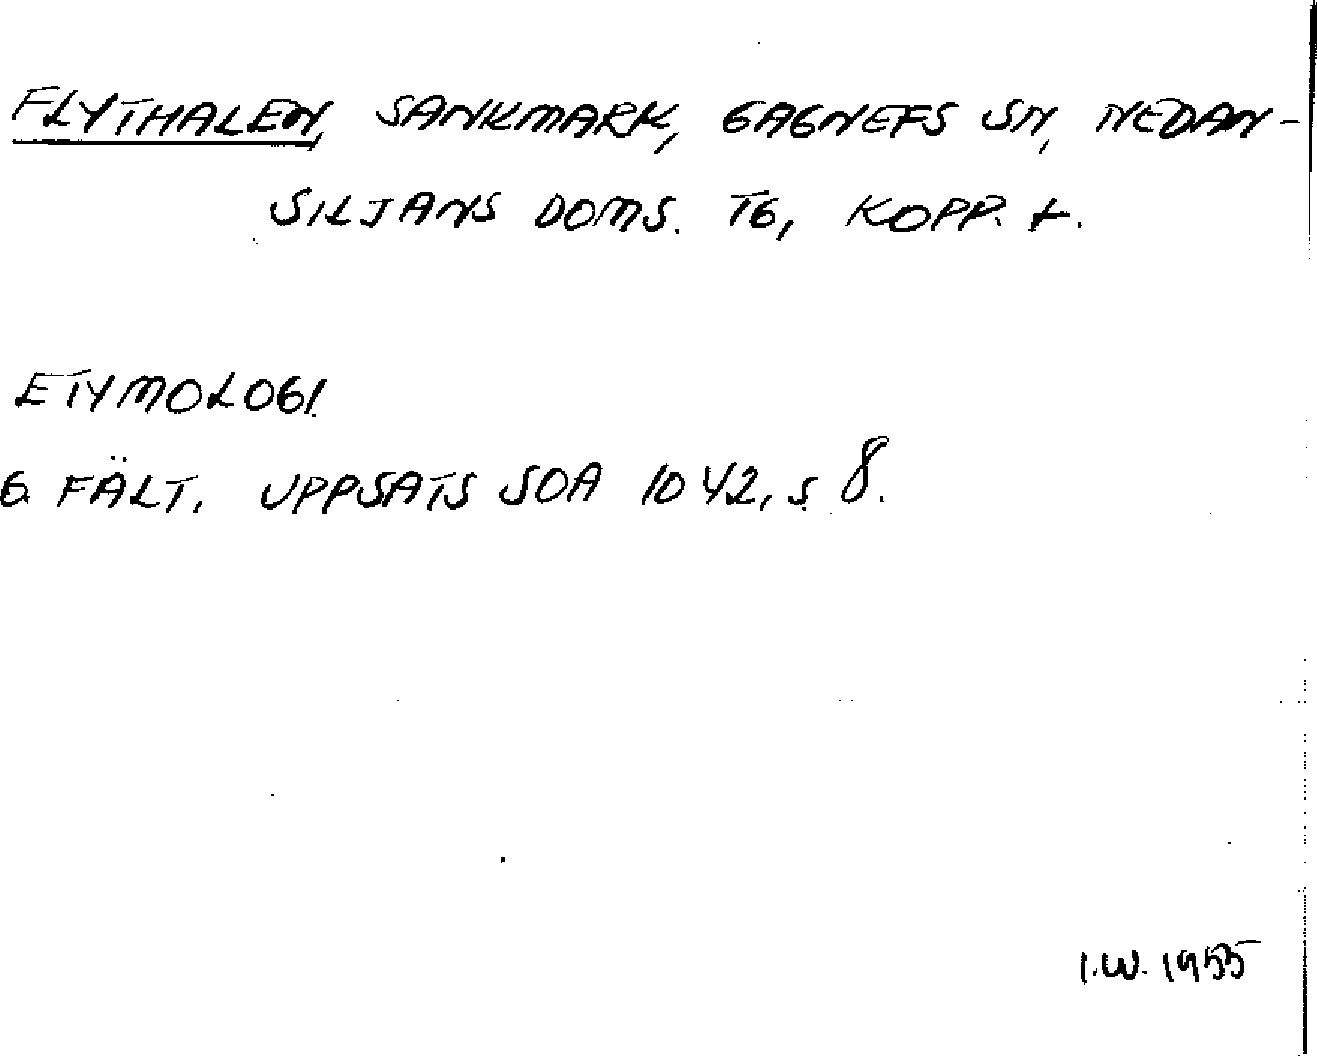 FLYTHALEN, SANKMARK, GAGNEFS SN, NEDAN-
SILJANS DOMS. TG, KOPP. L.
ETYMOLOGI
G. FÄLT, UPPSATS SOA 1042, S. 8.
I.W. 1955